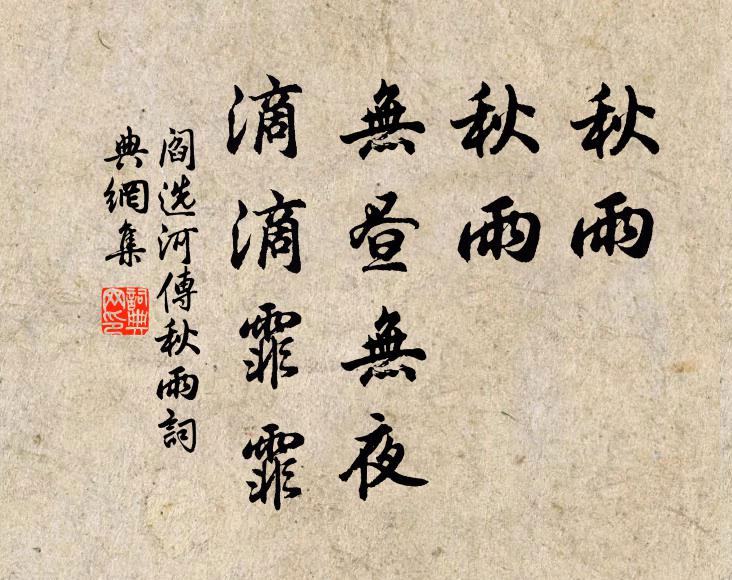 秋雨
秋雨
無昼無夜
滴滴霏霏
閻选河傳秋雨詞
典網集
詞典
网印